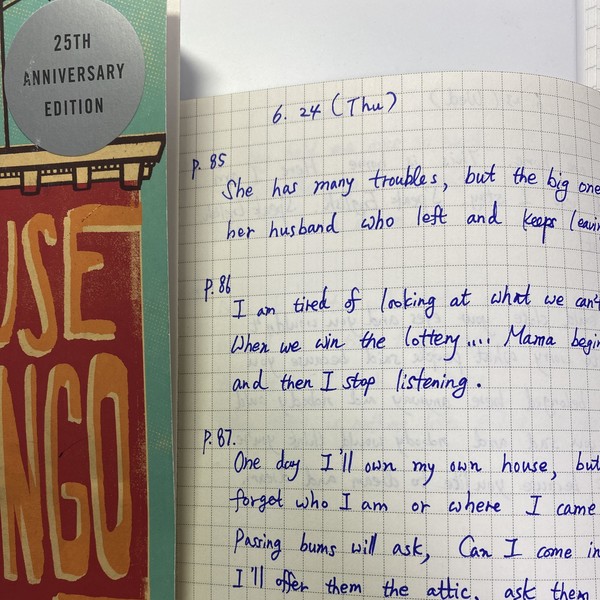 25TH
ANNIVERSARY
EDITION
USE
NGO
6. 24 (Thu)
P. 85
She has many troubles, but the big one
her husband who left and keeps leavin
P. 86
I am tired of looking at what we can't
When we win the lottery .... Mama begin
and then I stop listening.
P. 87.
One day I'll own my own house, but
forget who I am or where I came
Passing bums will ask, Can I come in
I'll offer them the attic, ask them